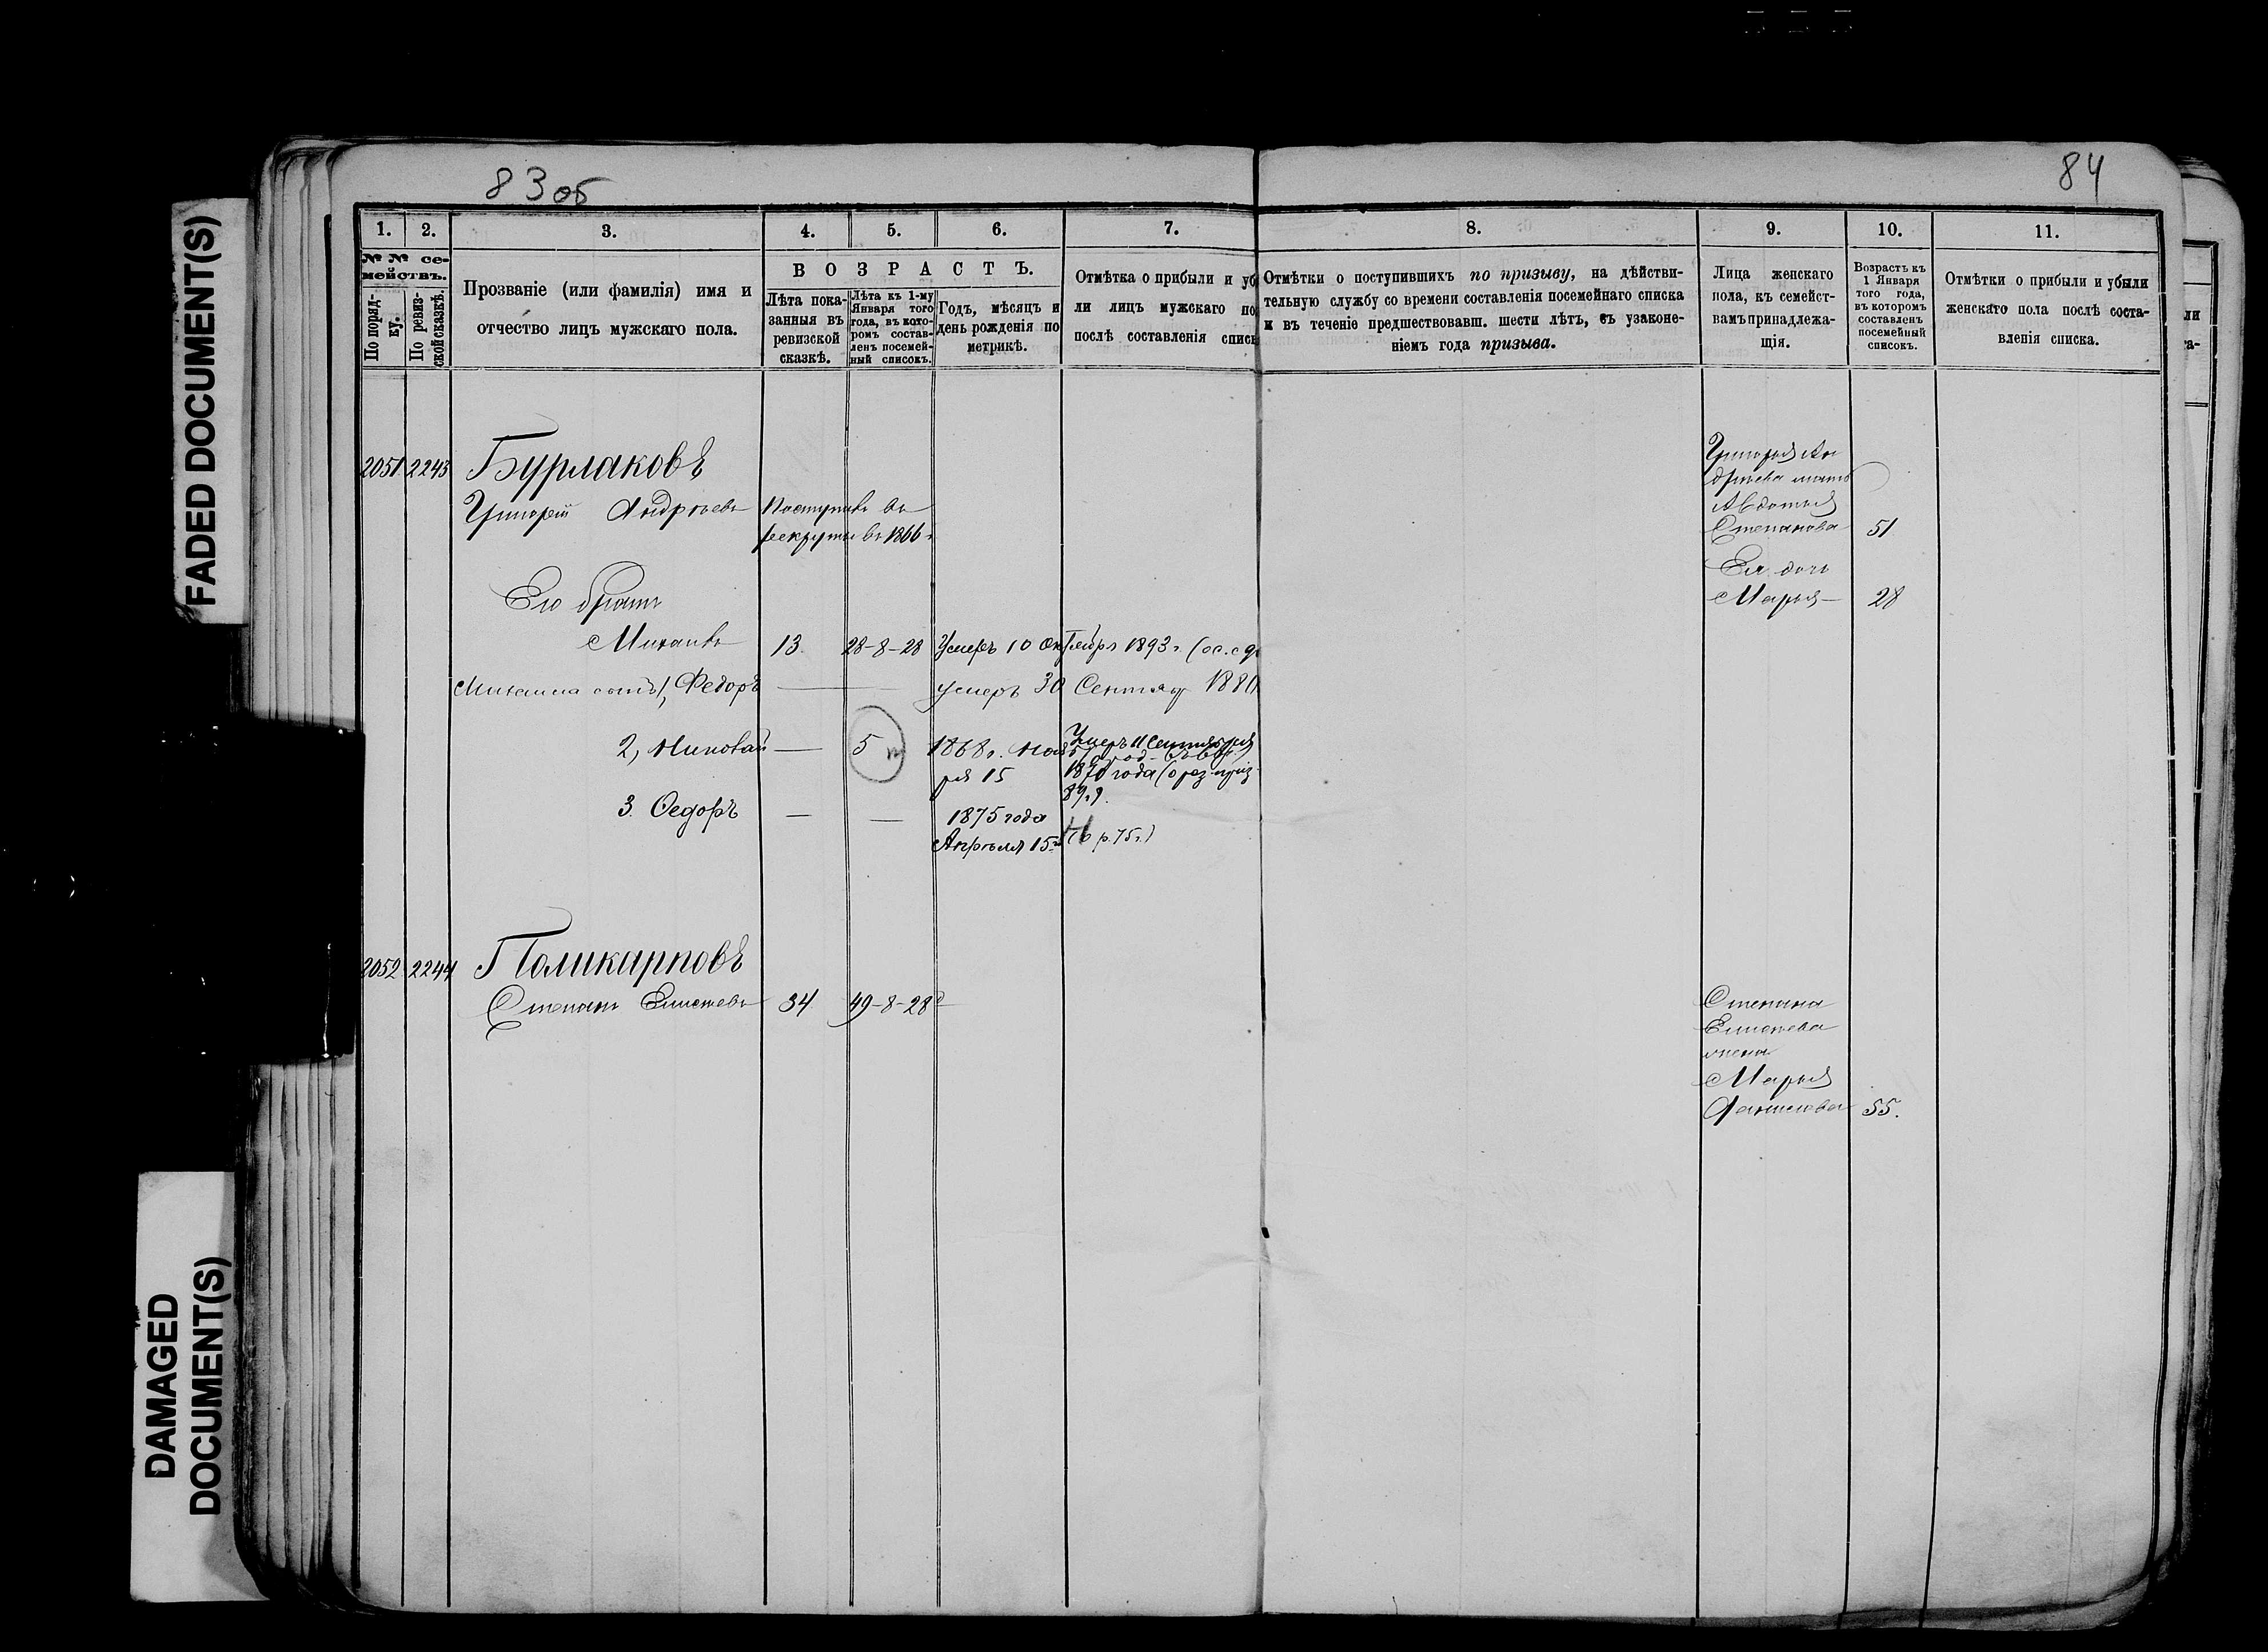 FADED DOCUMENT(S)
DAMAGED
DOCUMENT(S)
83об
84
1.
2.
3.
4.
5.
6.
7.
8.
9.
10.
11.
№№ се-
мействъ.
По поряд-
ку.
По ревиз-
ской сказкѣ.
Прозваніе (или фамилія) имя и
отчество лицъ мужскаго пола.
ВОЗРАСТЪ.
Лѣта пока-
занныя въ
ревизской
сказкѣ.
Лѣта къ 1-му
Января того
года, въ кото-
ромъ состав-
ленъ посемей-
ный списокъ.
Годъ, мѣсяцъ и
день рожденія по
метрикѣ.
Отмѣтка о прибыли и уб
ли лицъ мужскаго по
послѣ составленія списк
Отмѣтки о поступившихъ по призыву, на дѣйстви-
тельную службу со времени составленія посемейнаго списка
и въ теченіе предшествовавш. шести лѣтъ, съ узаконе-
ніемъ года призыва.
Лица женскаго
пола, къ семейст-
вамъ принадлежа-
щія.
Возрастъ къ
1 Января
того года,
въ которомъ
составленъ
посемейный
списокъ.
Отмѣтки о прибыли и убыли
женскаго пола послѣ соста-
вленія списка.
2051 2243 Бурлаковъ
Григорій Андреевъ Поступилъ въ
рекруты въ 1866 г.
Его братъ
Михаилъ 13. 28-8-28 Умеръ 10 Октября 1893 г.
Михаила сынъ 1, Федоръ — умеръ 30 Сентяб 1880
2, Николай — 5 1868 г. Нояб
ря 15
Умеръ 11 Сентября
1870 года
89 г.
3. Ѳедоръ — — 1875 года
Апрѣля 15го
(о р. 75 г.)
Григорья Ан
дреева мать
Авдотья
Степанова 51
Ея дочь
Марья— 28
2052 2244 Поликарповъ
Степанъ Елисеевъ 34 49-8-28
Степана
Елисеева
жена
Марья
Данилова 55.